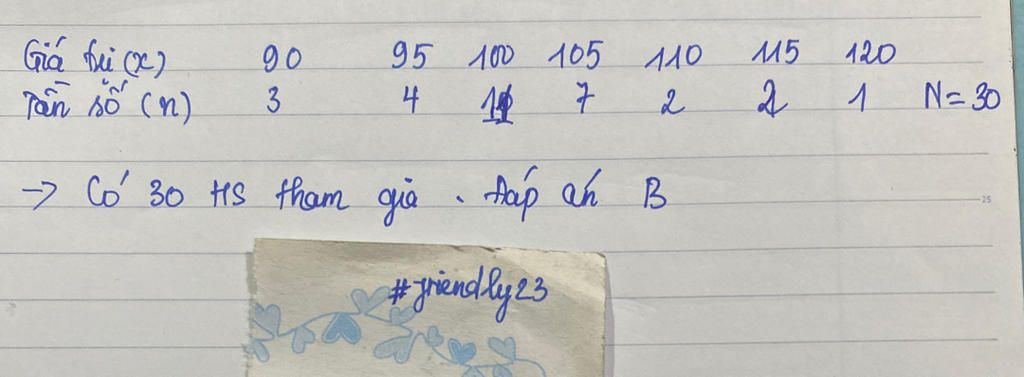 Giá trị (x) 90 95 100 105 110 115 120
Tần số (n) 3 4 11 7 2 2 1 N = 30
→ Có 30 HS tham gia. Đáp án B
25
#friendly23